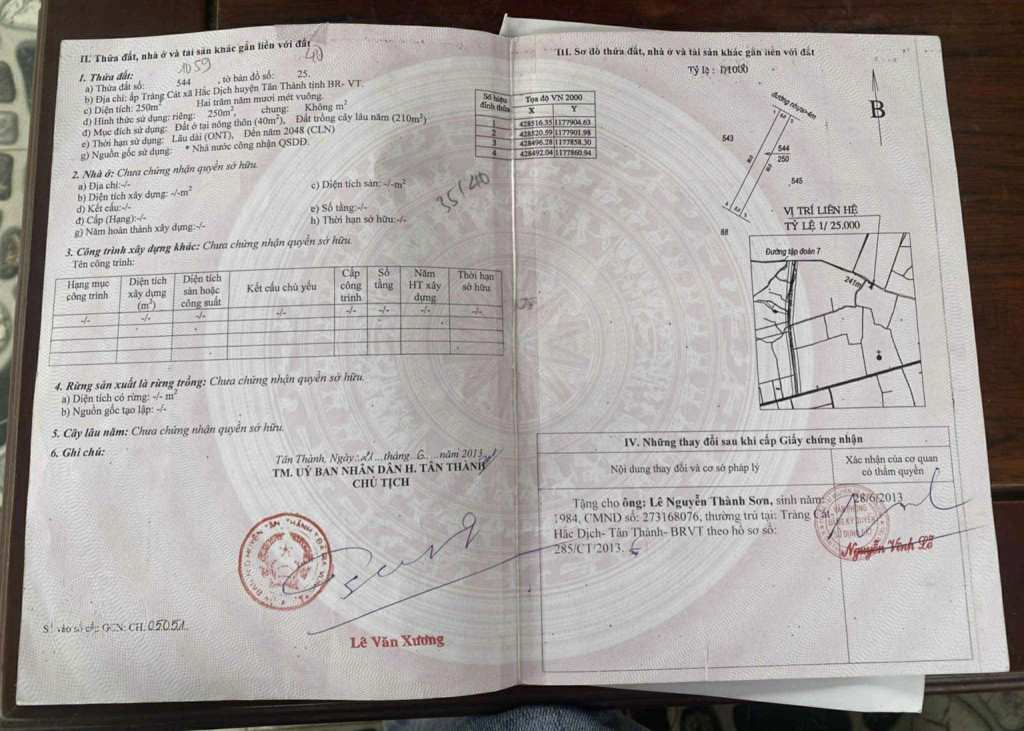 II. Thửa đất, nhà ở và tài sản khác gắn liền với đất
49
1. Thửa đất:
1059
a) Thửa đất số: 544 , tờ bản đồ số: 25.
b) Địa chỉ: ấp Trảng Cát xã Hắc Dịch huyện Tân Thành tỉnh BR- VT.
c) Diện tích: 250m² Hai trăm năm mươi mét vuông.
d) Hình thức sử dụng: riêng: 250m², chung: Không m²
đ) Mục đích sử dụng: Đất ở tại nông thôn (40m²), Đất trồng cây lâu năm (210m²)
e) Thời hạn sử dụng: Lâu dài (ONT), Đến năm 2048 (CLN)
g) Nguồn gốc sử dụng: * Nhà nước công nhận QSDĐ.
2. Nhà ở: Chưa chứng nhận quyền sở hữu.
a) Địa chỉ:-/-
b) Diện tích xây dựng: -/-m²
c) Diện tích sàn: -/-m²
d) Kết cấu:-/-
e) Số tầng:-/-
đ) Cấp (Hạng):-/-
h) Thời hạn sở hữu:-/-
g) Năm hoàn thành xây dựng:-/-
35/40
3. Công trình xây dựng khác: Chưa chứng nhận quyền sở hữu.
Tên công trình:
Hạng mục công trình | Diện tích xây dựng (m²) | Diện tích sàn hoặc công suất | Kết cấu chủ yếu | Cấp công trình | Số tầng | Năm HT xây dựng | Thời hạn sở hữu
-/- | -/- | -/- | -/- | -/- | -/- | -/- | -/-
4. Rừng sản xuất là rừng trồng: Chưa chứng nhận quyền sở hữu.
a) Diện tích có rừng: -/- m²
b) Nguồn gốc tạo lập: -/-
5. Cây lâu năm: Chưa chứng nhận quyền sở hữu.
6. Ghi chú:
Tân Thành, Ngày 21 tháng 6 năm 2013
TM. UỶ BAN NHÂN DÂN H. TÂN THÀNH
CHỦ TỊCH
Lê Văn Xương
Số vào sổ cấp GCN: CH 05051
III. Sơ đồ thửa đất, nhà ở và tài sản khác gắn liền với đất
Tỷ lệ : 1/1000
Số hiệu đỉnh thửa | Tọa độ VN 2000
X | Y
1 | 428516.35 | 1177904.63
2 | 428520.59 | 1177901.98
3 | 428496.28 | 1177858.30
4 | 428492.04 | 1177860.94
B
đường nhựa=4m
543
544
250
545
88
VỊ TRÍ LIÊN HỆ
TỶ LỆ 1/ 25.000
Đường tập đoàn 7
241m
IV. Những thay đổi sau khi cấp Giấy chứng nhận
Nội dung thay đổi và cơ sở pháp lý
Xác nhận của cơ quan có thẩm quyền
Tặng cho ông: Lê Nguyễn Thành Sơn, sinh năm:
1984, CMND số: 273168076, thường trú tại: Trảng Cát-
Hắc Dịch- Tân Thành- BRVT theo hồ sơ số:
285/CT 2013.
28/6/2013
VĂN PHÒNG
ĐĂNG KÝ QUYỀN
SỬ DỤNG ĐẤT
Nguyễn Vĩnh Lễ